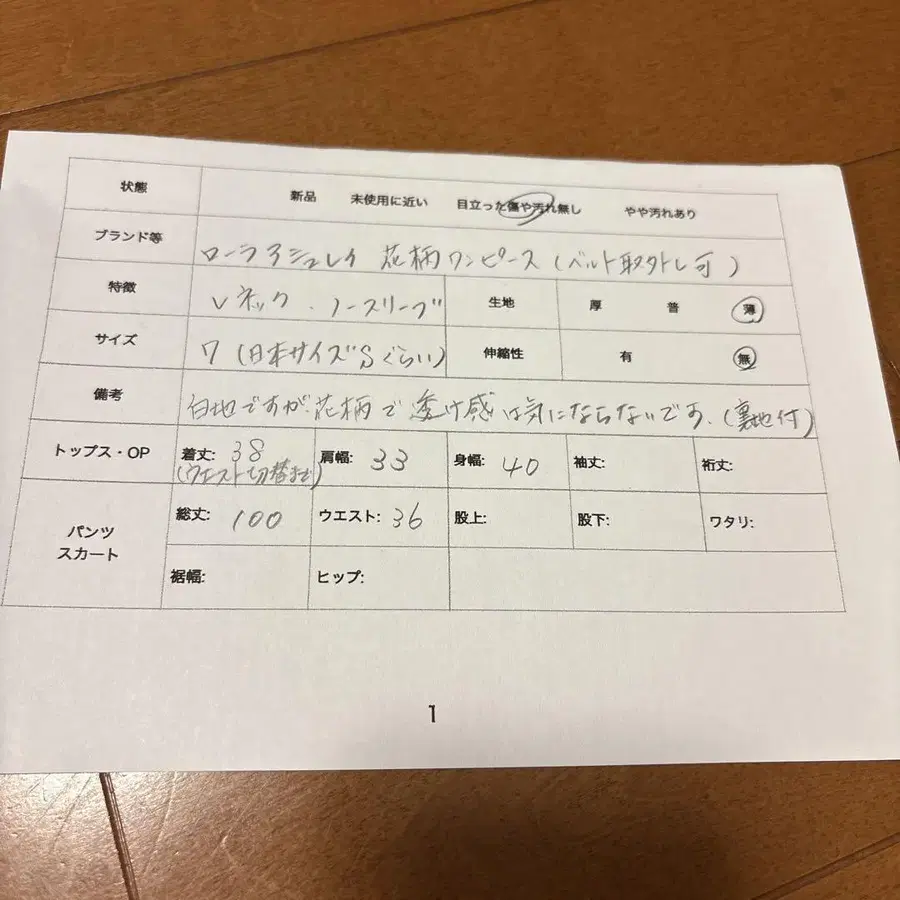 状態 新品 未使用に近い 目立った傷や汚れ無し やや汚れあり
ブランド等 ローラアシュレイ 花柄ワンピース(ベルト取外し可)
特徴 Vネック.ノースリーブ 生地 厚 普 薄
サイズ 7(日本サイズSぐらい) 伸縮性 有 無
備考 白地ですが花柄で透け感は気にならないです.(裏地付)
トップス・OP 着丈: 38 肩幅: 33 身幅: 40 袖丈: 裄丈:
(ウエスト切替まで)
パンツ スカート 総丈: 100 ウエスト: 36 股上: 股下: ワタリ:
裾幅: ヒップ:
1